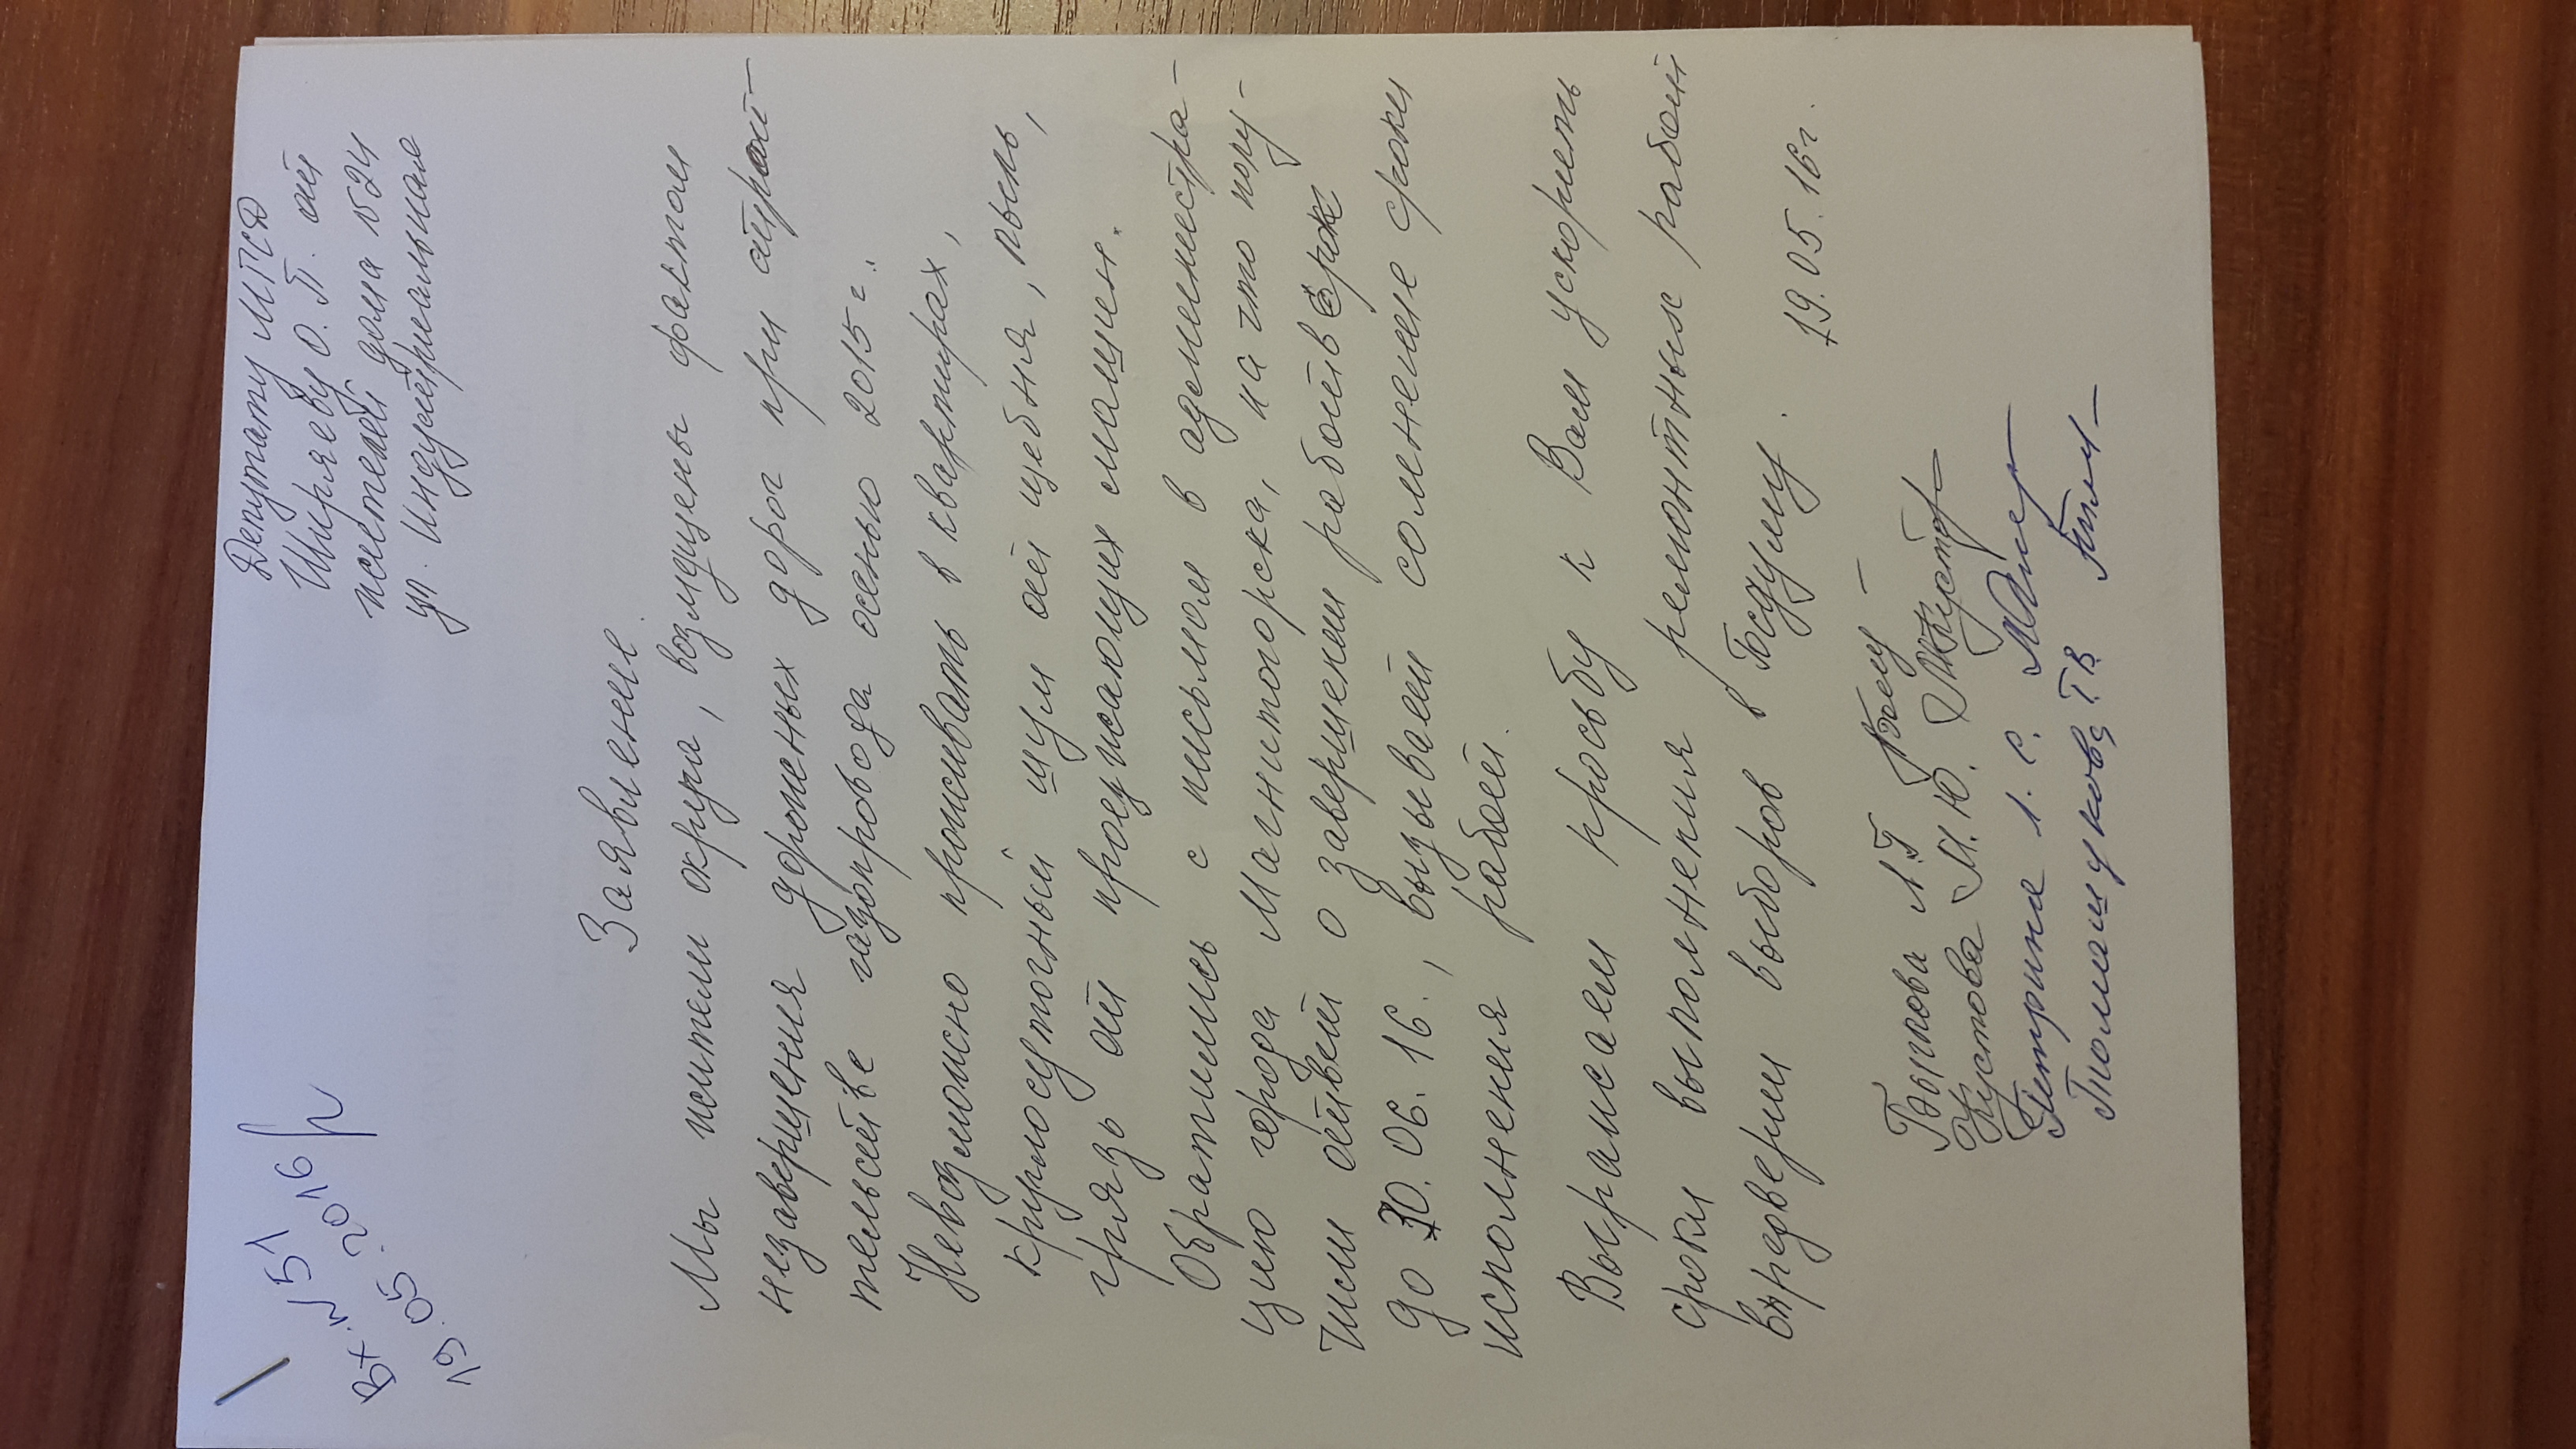 Вх. № 51
19.05.2016
Депутату МГСД
Ширяеву О. П. от
жителей дома № 24
ул. Индустриальная
Заявление.
Мы жители округа, возмущены фактом
незавершения дорожных дорог при строи-
тельстве газопровода осенью 2015 г.
Невозможно проживать в квартирах,
круглосуточный шум от щебня, пыль,
грязь от проезжающих машин.
Обратились с письмом в администра-
цию города Магнитогорска, на что полу-
чили ответ о завершении работ в срок
до 30.06.16., вызывает сомнение сроки
исполнения работ.
Выражаем просьбу к Вам ускорить
сроки выполнения ремонтных работ
впредверии выборов в Госдуму.
19.05.16г.
Л.Г
Жустова М.Ю.
Петрина
Т.В